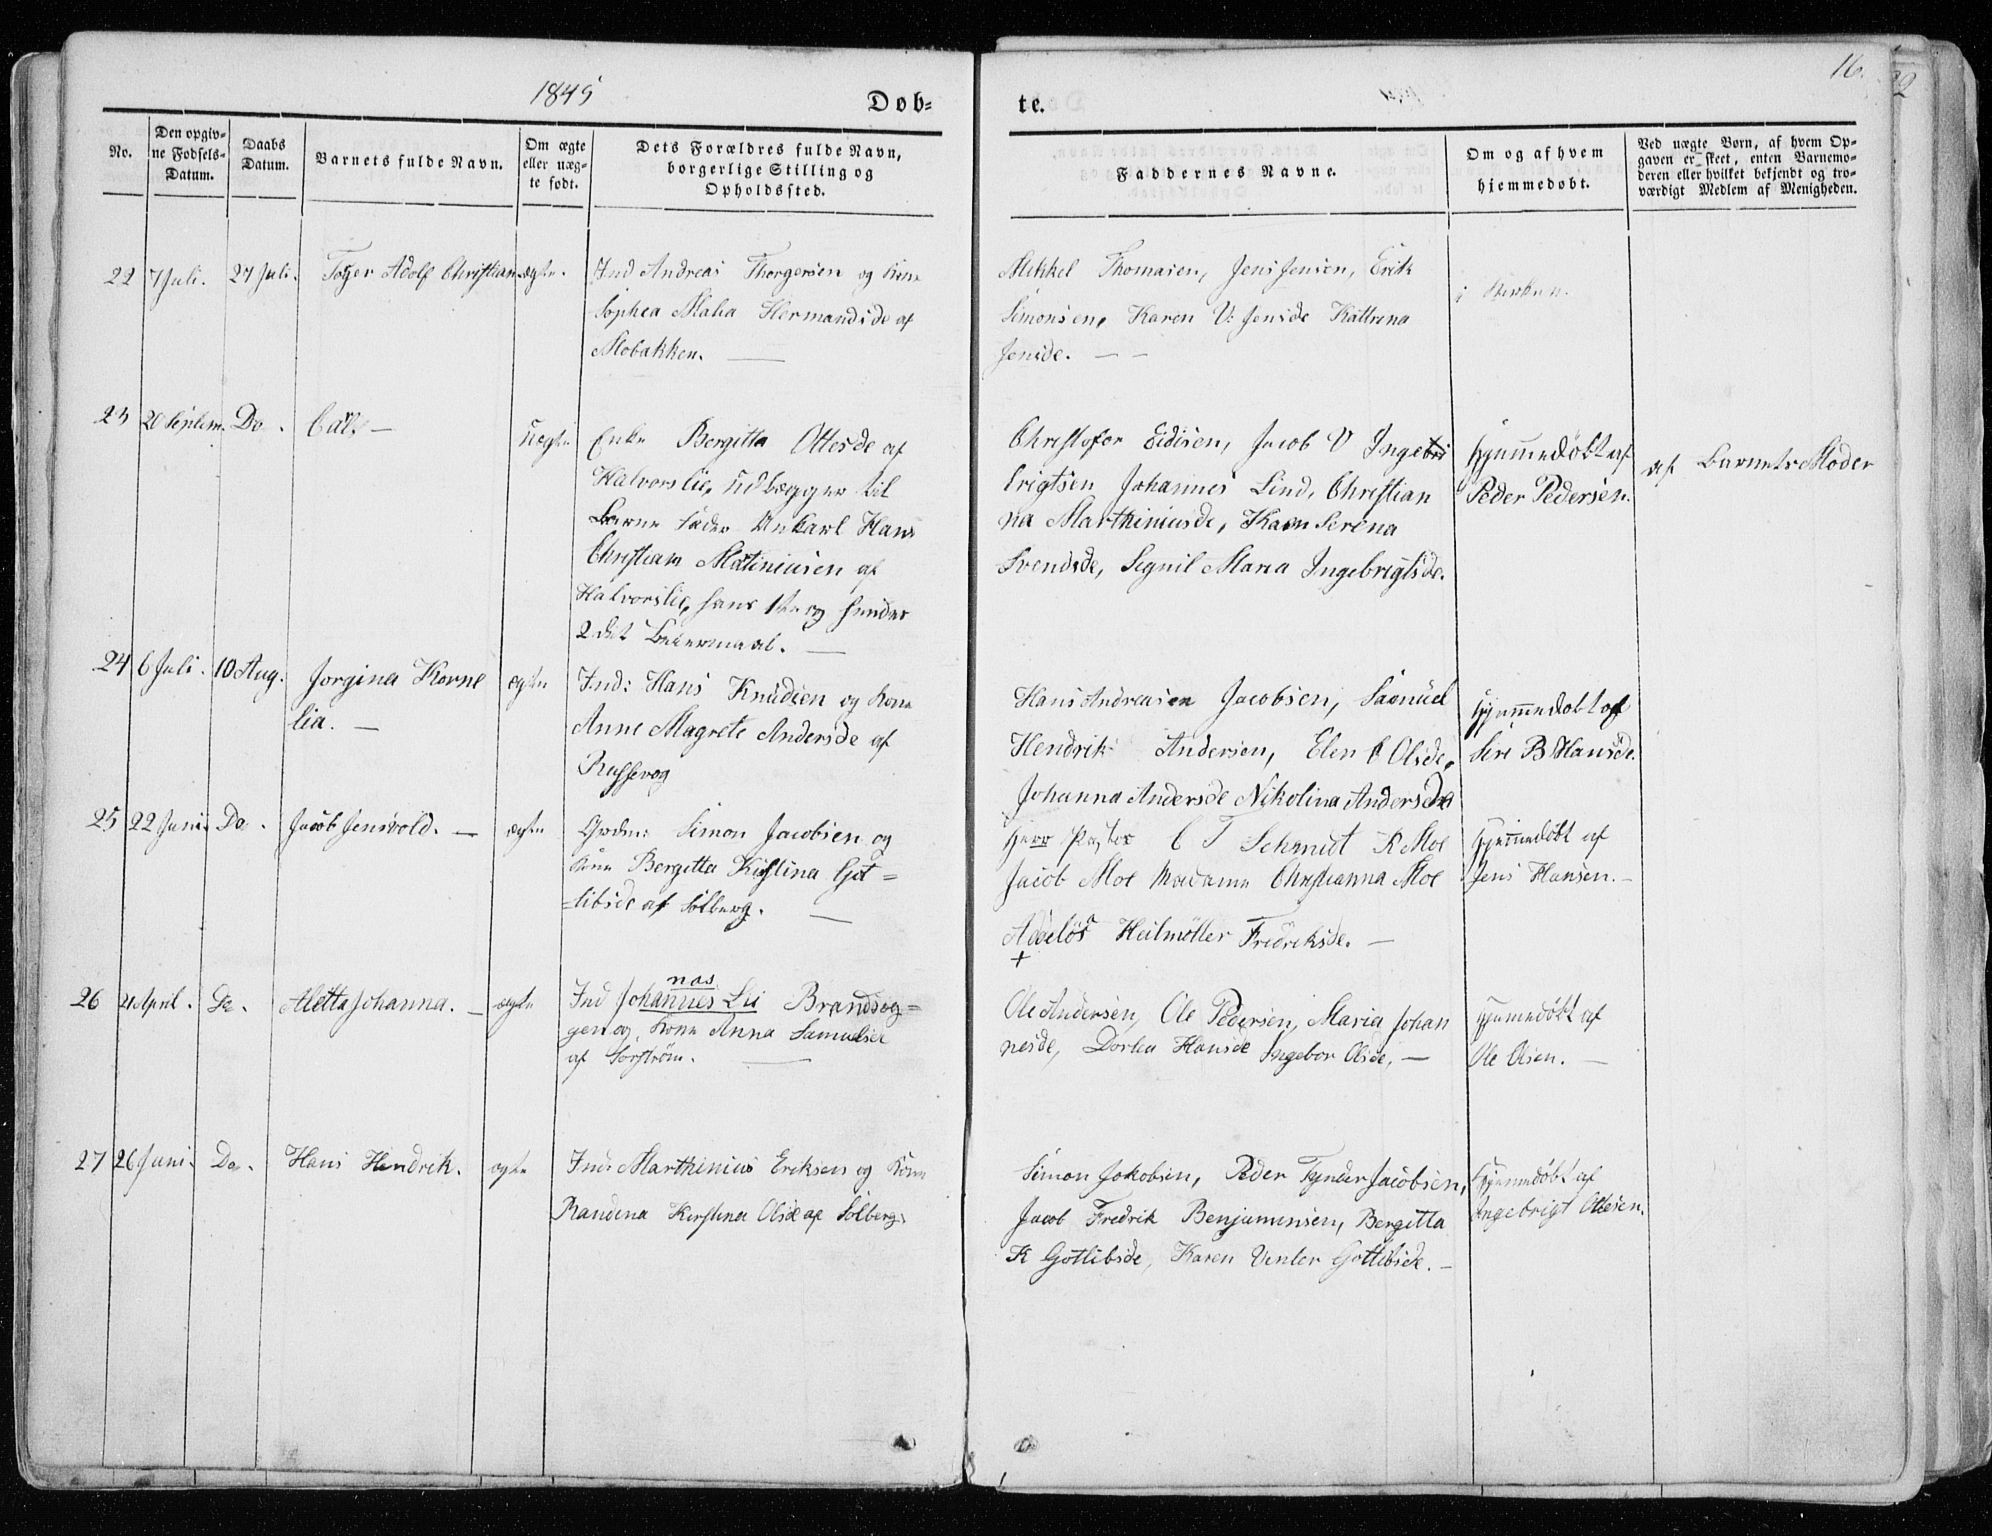 1845
Døb=
te.
16.
No.
Den opgiv=
ne Fødsels=
Datum.
Daabs
Datum.
Barnets fulde Navn.
Om ægte
eller uæg=
te født.
Dets Forældres fulde Navn,
borgerlige Stilling og
Opholdssted.
Faddernes Navne.
Om og af hvem
hjemmedøbt.
Ved uægte Børn, af hvem Op=
gaven er skeet, enten Barnemo=
deren eller hvilket bekjendt og tro=
værdigt Medlem af Menigheden.
22 7 Juli. 27 Juli. Toger Adolf Christian ægte.
Ind Andreas Thorgersen og Kone
Sophea Malia Hermandsde af
Mobakken. —
Mikkel Thomasen, Jens Jensen, Erik
Simonsen, Karen V: Jensde Kattrina
Jensde. — —
i Kirken.
23 20 Septem. Do. Carl — uægte
Enke Bergitta Ottesde af
Halvorslie, udlægger til
Barne fader Unkarl Hans
Christian Matiniusen af
Halvorslie, hans 1ste og hendes
2det Leiermaal. —
Christofor Eidisen, Jacob V Ingebri
Erigtsen Johannes Lind, Christian
na Marthiniusde, Karen Serena
Svendsde, Signil Maria Ingebrigtsde.
Hjemmedøbt af
Peder Pedersen.
af Barnets Moder
24 6 Juli. 10 Aug. Jorgina Korne
lia. —
ægte
Ind: Hans Knudsen og Kone
Anne Magrete Andersde af
Russevog
Hans Andreasen Jacobsen, Samuel
Hendrik Andersen, Elen C Olsde,
Johanna Andersde Nikolina Andersde
Hjemmedøbt af
Siri B Hansde.
25 22 Juni Do. Jacob Jensvold. — ægte
Grdm: Simon Jacobsen og
Kone Bergitta Kistina Got=
libsde af Solberg. —
Herr Pastor C T Schmidt K Moe
Jacob Moe Madame Christianna Moe
Heilmøller Fredriksde. —
Hjemmedøbt af
Jens Hansen. —
26 21 April. Do. Aletta Johanna. — ægte
nas
Ind Johannes Lii Brandsog=
gen og Kone Anna Samuelsde
af Sorstrøm. —
Ole Andersen, Ole Pedersen, Maria Johan
nesde, Dorlea Hansde Ingebor Olsde, —
Hjemmedøbt af
Ole Olsen. —
27 26 Juni. Do. Hans Hendrik. ægte
Ind: Marthinius Eriksen og Kone
Randina Kerstina Olsde af Solberg.
Simon Jokobsen, Peder Tynder Jacobsen,
Jacob Fredrik Benjaminsen, Bergitta
K Gotlibsde, Karen Venter Gottlibsde. —
Hjemmedøbt af
Ingebrigt Ottesen.